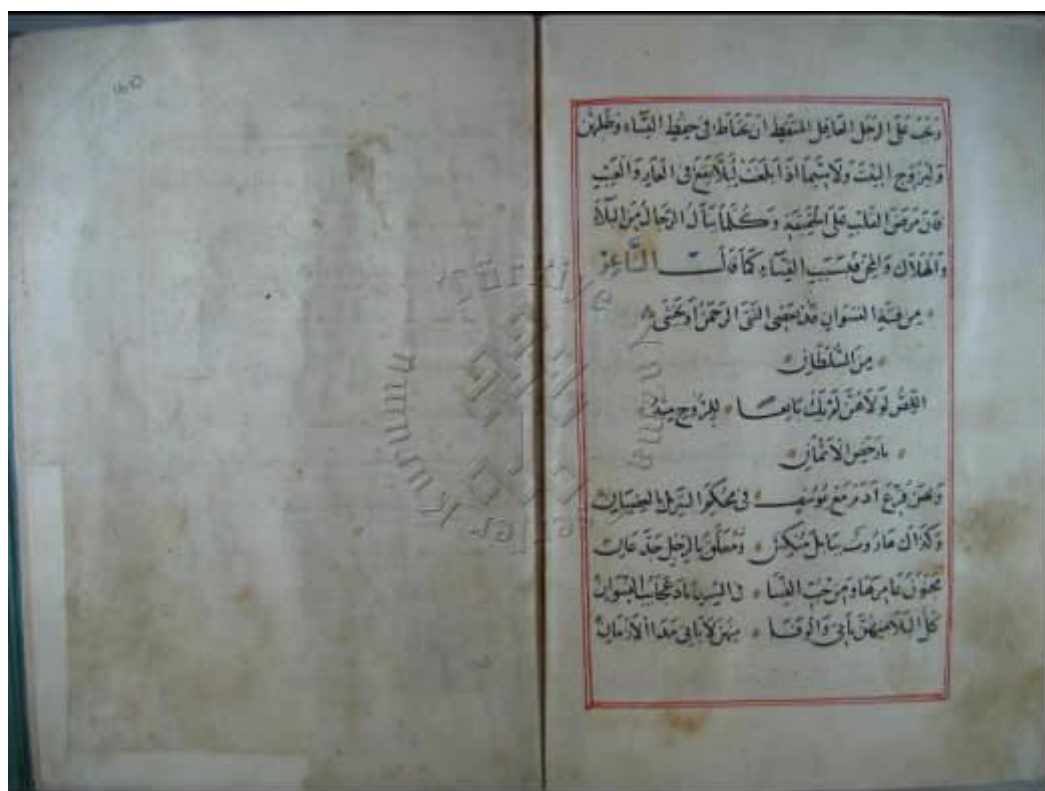 160
ويجب على الرجل العاقل المتيقظ ان يحتاط في حفظ النساء
وليزوج البنت ولا سيما اذا بلغت لئلا يقع في العار والعيب
فان مرض القلب على الحقيقة وكلما ينال الرجال من البلاء
والهلاك والمحن فبسبب النساء كما قال الشاعر
من فتنة النسوان قد يعصى الفتى الرحمن او يخشى
من السلطان
اللص لولاهن لم يك بايعا للروح منه
بارخص الاثمان
آدم مع يوسف في محكم التنزيل بالعصيان
وكذاك هاروت ببابل منكس ومعلق بالرجل
مجنون عامر هام من حب النسا
كل البلا منهن ياتي والوفا منهن لا ياتي مدا الازمان
Türkiye Yazma Eserler Kurumu